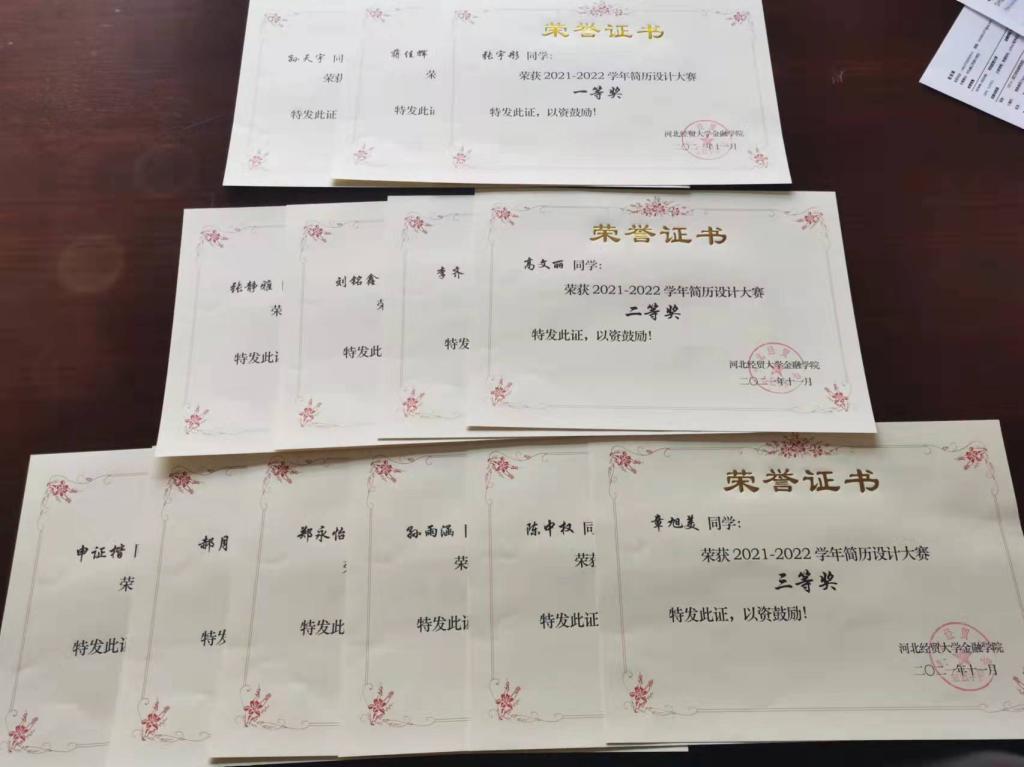 孙天宇 同
荣获
特发此证
蒋佳辉
荣
特发此证
荣誉证书
张宇彤 同学:
荣获 2021-2022 学年简历设计大赛
一等奖
特发此证，以资鼓励!
河北经贸大学金融学院
二〇二一年十一月
张静雅
荣
特发此证
刘铭鑫
荣
特发此
李齐
特发
荣誉证书
高文丽 同学:
荣获 2021-2022 学年简历设计大赛
二等奖
特发此证，以资鼓励!
河北经贸大学金融学院
二〇二一年十一月
申证楷
荣
特发此证
郝月
特发
郑永怡
特发此
孙雨涵
荣
特发此证
陈中权 同
荣获
特发此证
荣誉证书
章旭美 同学:
荣获 2021-2022 学年简历设计大赛
三等奖
特发此证，以资鼓励!
河北经贸大学金融学院
二〇二一年十一月